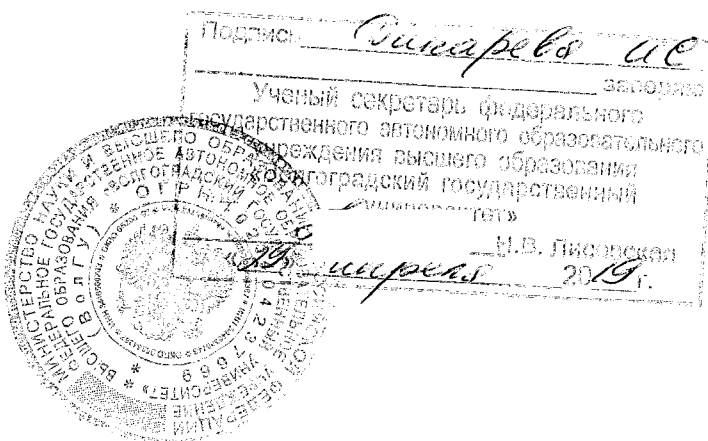 Подпись Винарева ИС
заверяю
Ученый секретарь федерального
государственного автономного образовательного
учреждения высшего образования
«Волгоградский государственный
университет»
Н.В. Лисовская
«29» апреля 2019 г.
МИНИСТЕРСТВО НАУКИ И ВЫСШЕГО ОБРАЗОВАНИЯ РОССИЙСКОЙ ФЕДЕРАЦИИ
ФЕДЕРАЛЬНОЕ ГОСУДАРСТВЕННОЕ АВТОНОМНОЕ ОБРАЗОВАТЕЛЬНОЕ УЧРЕЖДЕНИЕ
ВЫСШЕГО ОБРАЗОВАНИЯ "ВОЛГОГРАДСКИЙ ГОСУДАРСТВЕННЫЙ УНИВЕРСИТЕТ"
(ВолГУ) * ОГРН